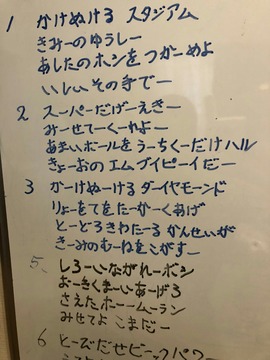 1 かけぬける スタジアム
きみーのゆうしー
あしたのホシを つかーめよ
いしいその手でー
2 スーパーだげーえきー
みーせてーくーれよー
あまいボールを うーちくーだけハル
きょーおの エムブイピーイだー
3 がーけぬーける ダーイヤモーンド
りょーをてをたーかーくあげ
とーどろきわたーる かんせいが
きーみのむーねをこがすー
5、 しろーいながれーボシ
おーきくまーいあーげろ
さえたホームーラン
みせてよ こまだー
6 とーびだせビーックパワー